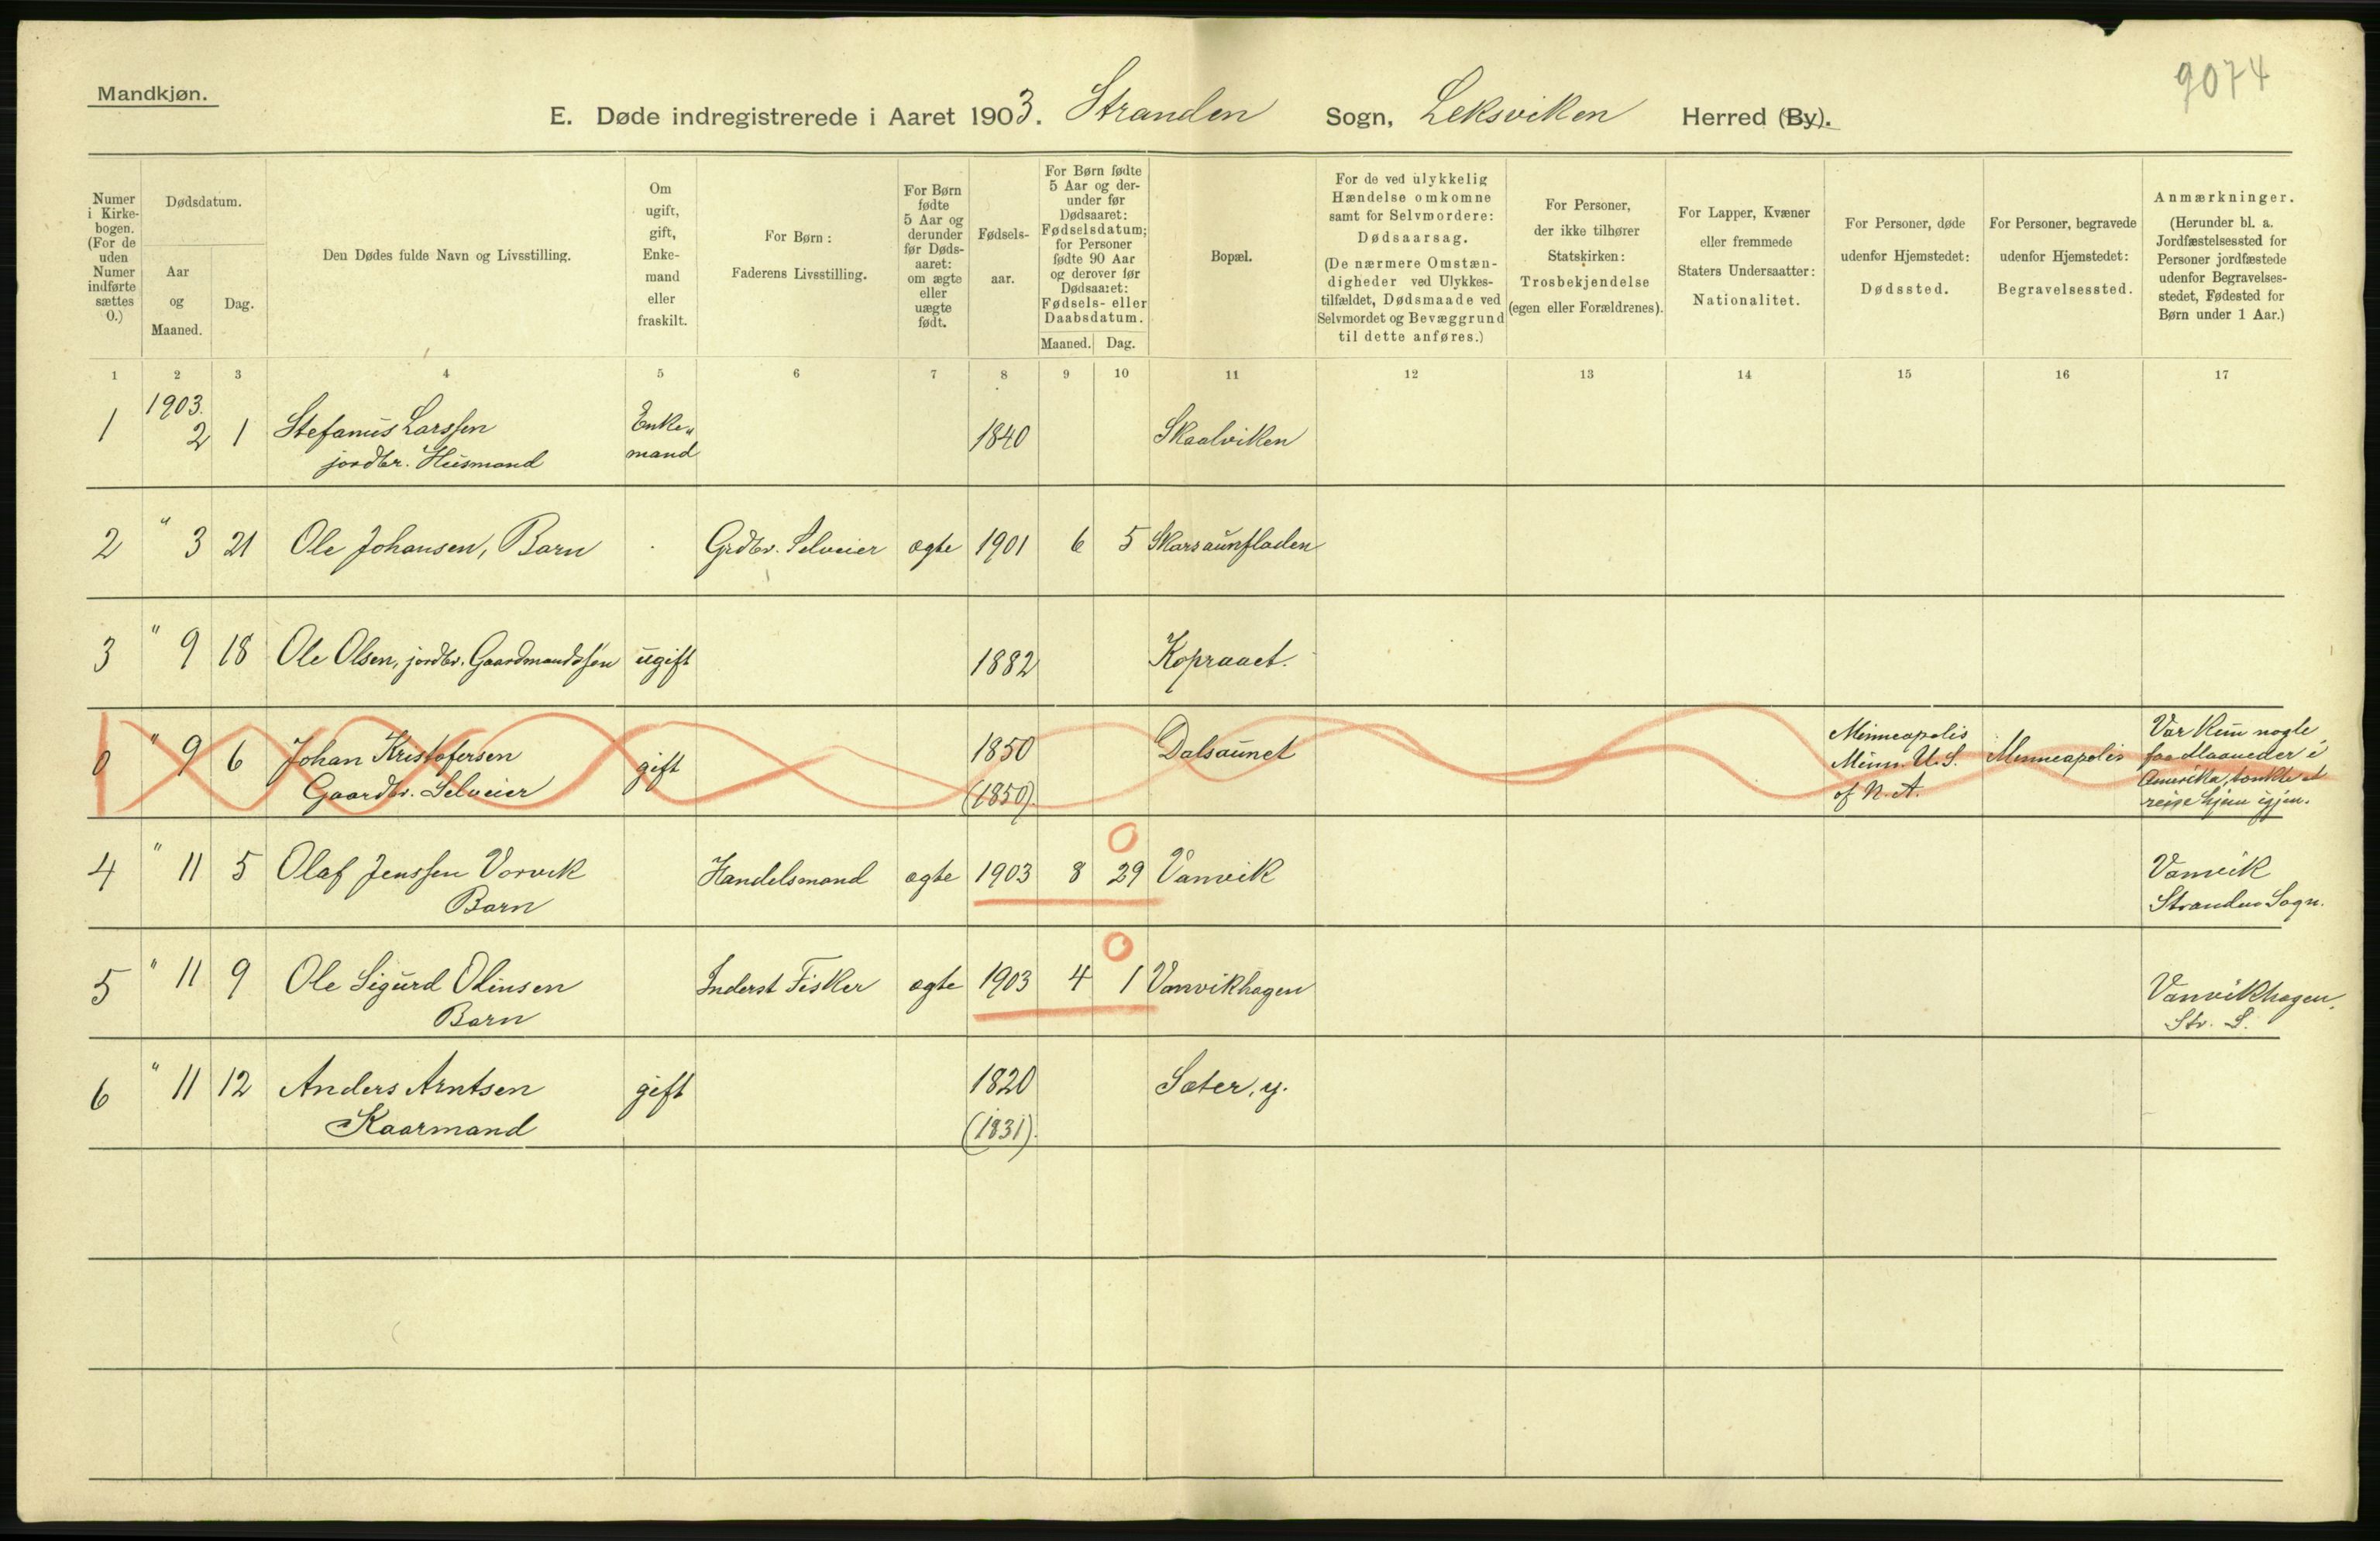 Mandkjøn.
9074
E. Døde indregistrerede i Aaret 1903. Stranden Sogn, Leksviken Herred (By).
Numer i Kirkebogen. (For de uden Numer indførte sættes 0.)
Dødsdatum.
Aar og Maaned.
Dag.
Den Dødes fulde Navn og Livsstilling.
Om ugift, gift, Enkemand eller fraskilt.
For Børn: Faderens Livsstilling.
For Børn fødte 5 Aar og derunder før Dødsaaret: om ægte eller uægte født.
Fødselsaar.
For Børn fødte 5 Aar og derunder før Dødsaaret: Fødselsdatum; for Personer fødte 90 Aar og derover før Dødsaaret: Fødsels- eller Daabsdatum.
Maaned. Dag.
Bopæl.
For de ved ulykkelig Hændelse omkomne samt for Selvmordere: Dødsaarsag. (De nærmere Omstændigheder ved Ulykkestilfældet, Dødsmaade ved Selvmordet og Bevæggrund til dette anføres.)
For Personer, der ikke tilhører Statskirken: Trosbekjendelse (egen eller Forældrenes).
For Lapper, Kvæner eller fremmede Staters Undersaatter: Nationalitet.
For Personer, døde udenfor Hjemstedet: Dødssted.
For Personer, begravede udenfor Hjemstedet: Begravelsessted.
Anmærkninger. (Herunder bl. a. Jordfæstelsessted for Personer jordfæstede udenfor Begravelsesstedet, Fødested for Børn under 1 Aar.)
1 2 3 4 5 6 7 8 9 10 11 12 13 14 15 16 17
1903.
1 2 1 Stefanus Larssen Enke„ 1840 Skaalviken
jordbr. Husmand mand
2 " 3 21 Ole Johansen, Barn Grdbr. Selveier ægte 1901 6 5 Skarsaunfladen
3 " 9 18 Ole Olsen, jordbr. Gaardmandssøn ugift 1882 Kopraaet.
0 " 9 6 Johan Kristofersen gift 1850 Dalsaunet Minneapolis Minn. U.S. of N.A. Minneapolis Var kun nogle faa Maaneder i Amerika, tænkte at reise hjem igjen.
Gaardbr. Selveier (1850).
4 " 11 5 Olaf Jenssen Vorvik Handelsmand ægte 1903 8 29 Vanvik Vanvik
Barn Stranden Sogn.
5 " 11 9 Ole Sigurd Odinsen Inderst Fisker ægte 1903 4 1 Vanvikhagen Vanvikhagen,
Barn Str. S.
6 " 11 12 Anders Arntsen gift 1820 Sæter, y.
Kaarmand (1831).